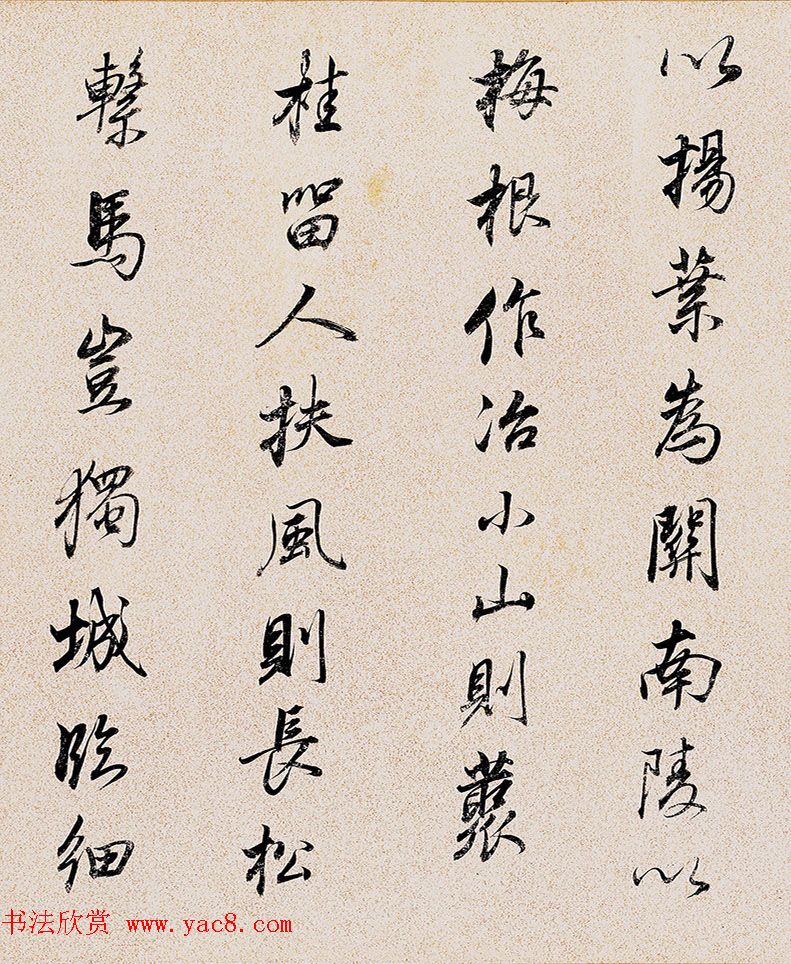 以揚葉為關南陵以
梅根作冶小山則藂
桂留人扶風則長松
繫馬豈獨城臨細
书法欣赏 www.yac8.com